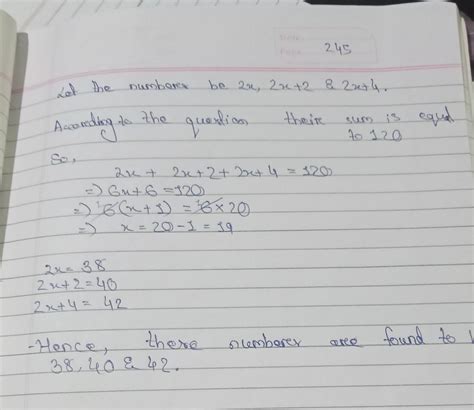 245
Let the numberes be 2x, 2x+2 & 2x+4.
According to the question their sum is equal
to 120
So,
2x + 2x+2+2x+4 = 120
=> 6x+6=120
=> 6(x+1) = 6×20
=> x=20-1=19
2x=38
2x+2=40
2x+4= 42
-Hence, these numberes are found to
38, 40 & 42.